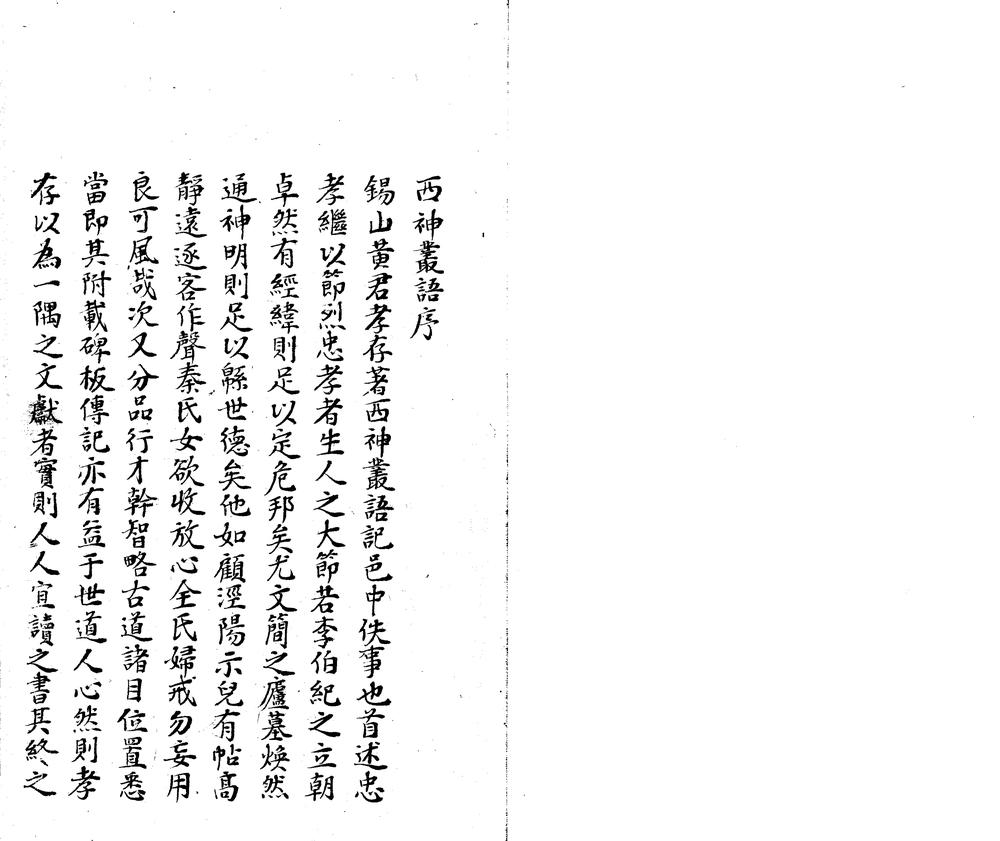 西神叢語序
錫山黄君孝存著西神叢語記邑中佚事也首述忠
孝繼以節烈忠孝者生人之大節若李伯紀之立朝
卓然有經緯則足以定危邦矣尤文簡之廬墓煥然
通神明則足以緜世德矣他如顧涇陽示兒有帖高
靜遠逐客作聲秦氏女欲收放心全氏婦戒勿妄用
良可風哉次又分品行才幹智略古道諸目位置悉
當即其附載碑板傳記亦有益于世道人心然則孝
存以為一隅之文獻者實則人人宜讀之書其終之